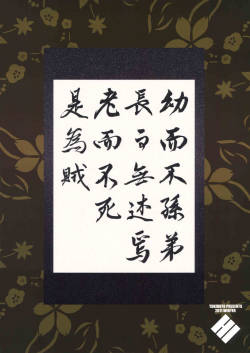 幼而不孫弟
長而無述焉
老而不死
是為賊